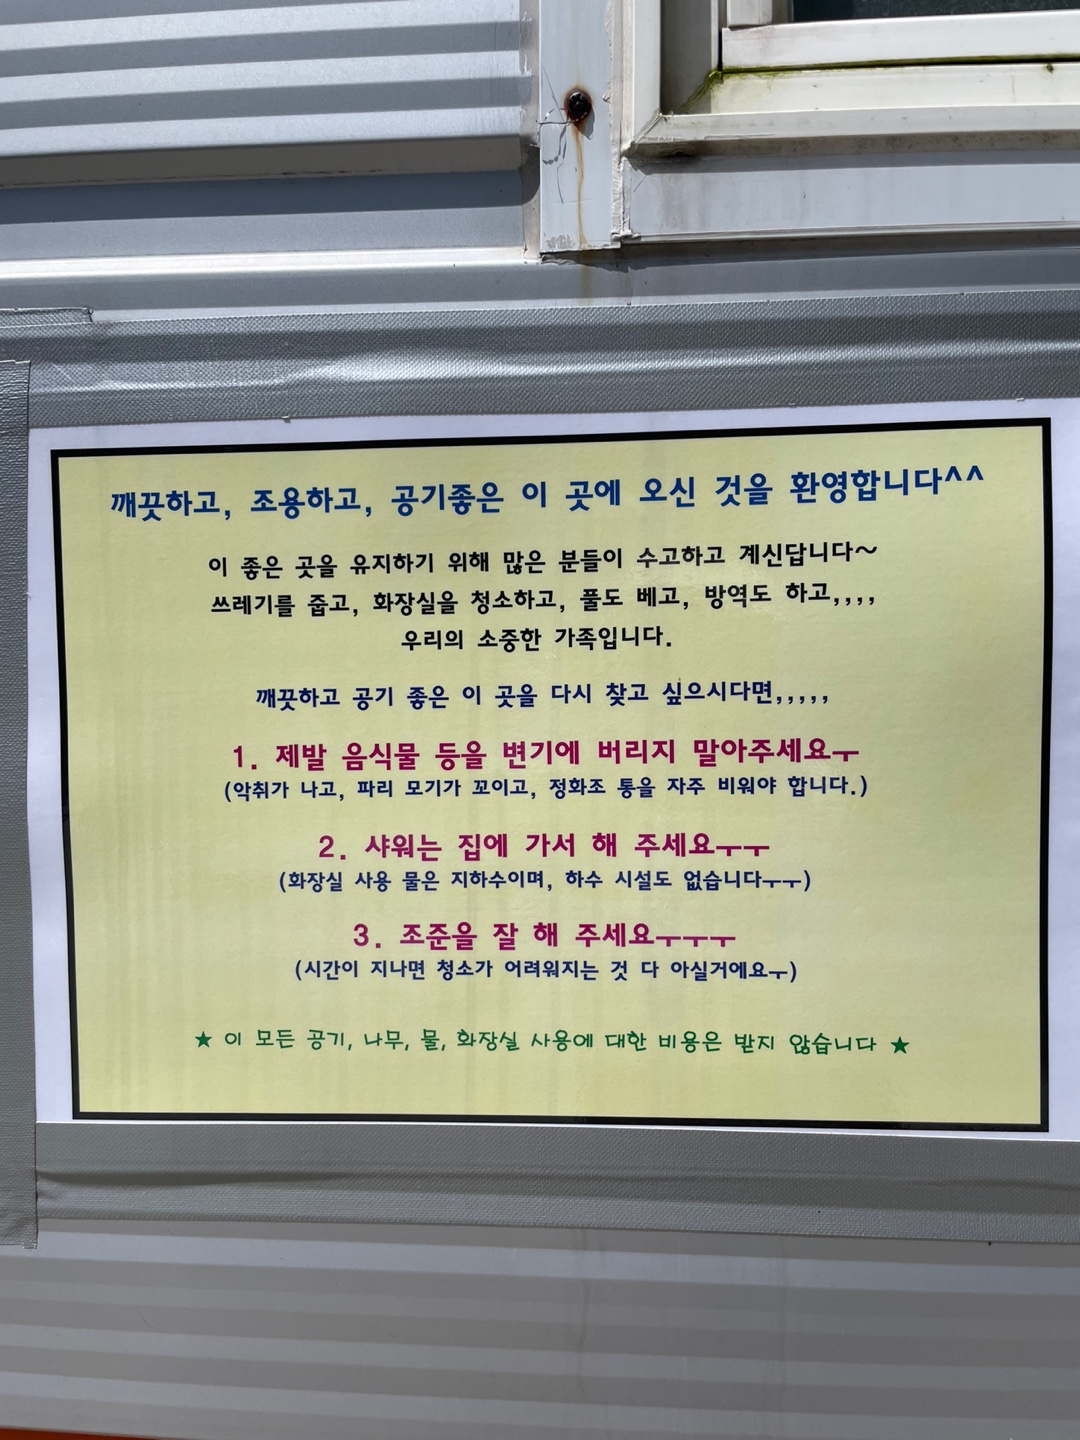 깨끗하고, 조용하고, 공기좋은 이 곳에 오신 것을 환영합니다^^
이 좋은 곳을 유지하기 위해 많은 분들이 수고하고 계신답니다~
쓰레기를 줍고, 화장실을 청소하고, 풀도 베고, 방역도 하고,,,,
우리의 소중한 가족입니다.
깨끗하고 공기 좋은 이 곳을 다시 찾고 싶으시다면,,,,,
1. 제발 음식물 등을 변기에 버리지 말아주세요ㅜ
(악취가 나고, 파리 모기가 꼬이고, 정화조 통을 자주 비워야 합니다.)
2. 샤워는 집에 가서 해 주세요ㅜㅜ
(화장실 사용 물은 지하수이며, 하수 시설도 없습니다ㅜㅜ)
3. 조준을 잘 해 주세요ㅜㅜㅜ
(시간이 지나면 청소가 어려워지는 것 다 아실거에요ㅜ)
★ 이 모든 공기, 나무, 물, 화장실 사용에 대한 비용은 받지 않습니다 ★